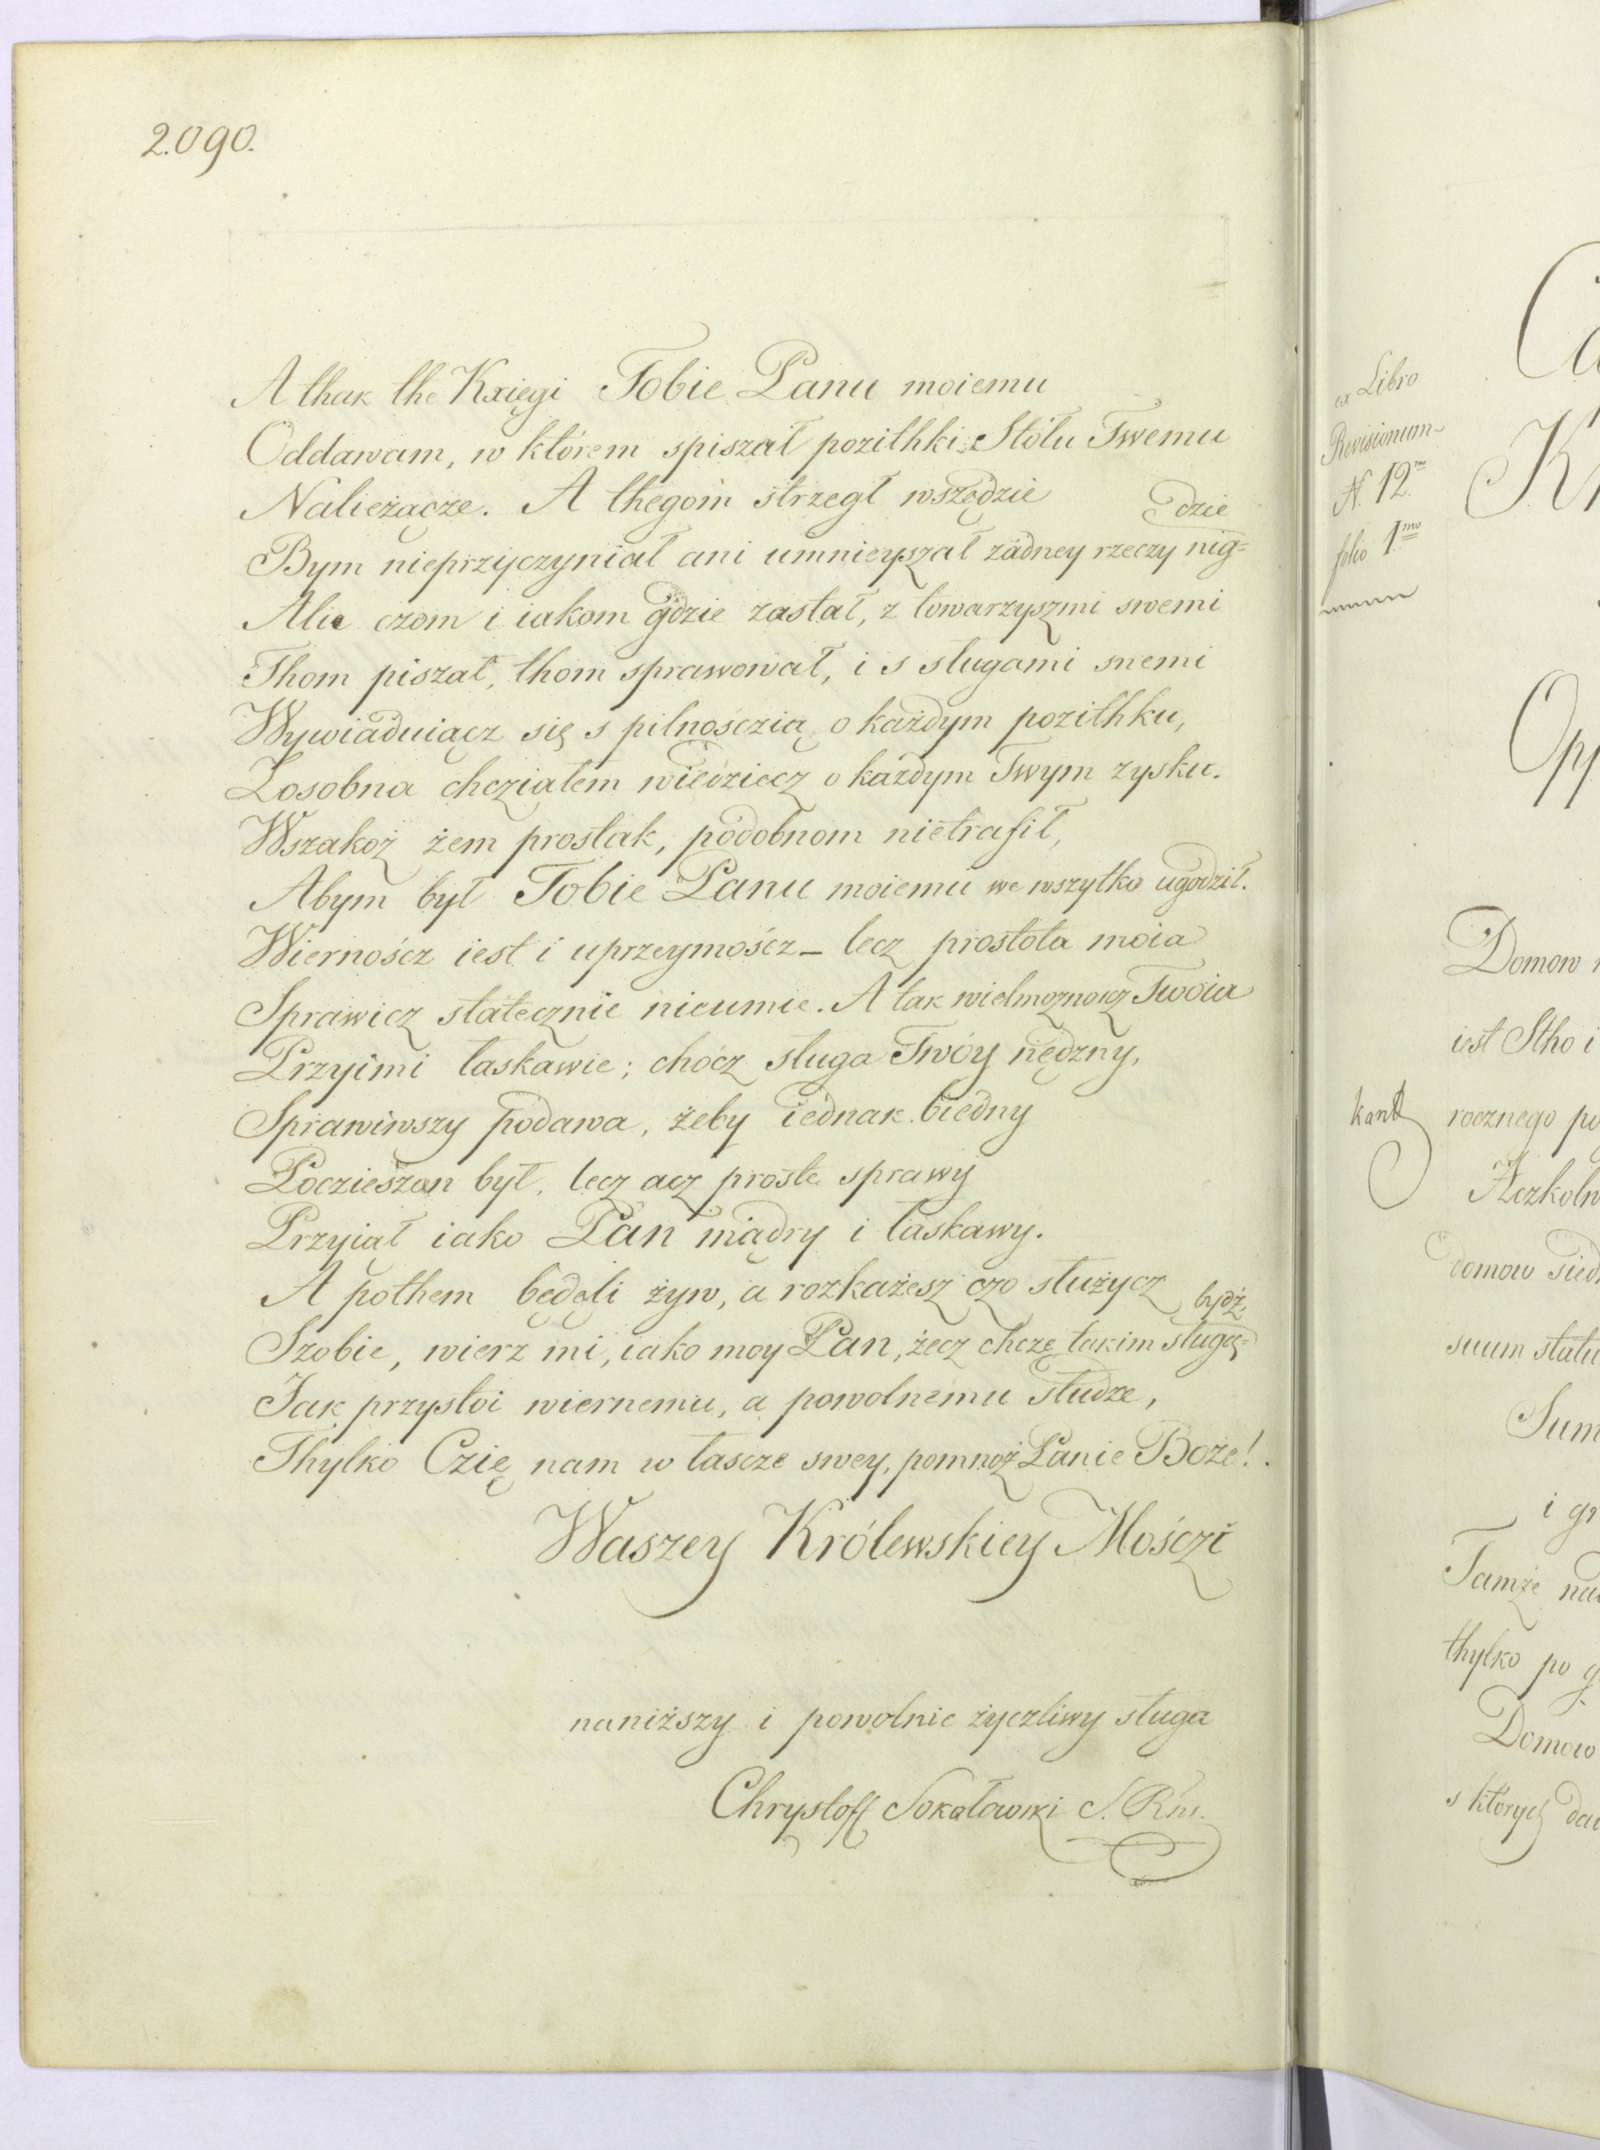 2.090.
A thak the Kxięgi Tobie Panu moiemu
Oddawam, w którem spiszał pozithki z Stółu Twemu
Nalieżącze. A thegom strzegł wszędzie
Bym nieprzyczyniał ani umnieyszał żadney rzeczy nig=
dzie
Alie czom i iakom gdzie zastał, z towarzyszmi swemi
Thom piszał, thom sprawował, i s sługami smemi
Wywiaduiącz się s pilnośczią o każdym pozithku,
Zosobna chcziałem wiedziecz o każdym Twym zysku.
Wszakoż żem prostak, podobnom nietrafił,
Abym był Tobie Panu moiemu we wszytko ugodził.
Wiernoścz iest i uprzeymoścz – lecz prostota moia
Sprawicz statecznie nieumie. A tak wielmoznoscz Twoia
Przyimi łaskawie; choćz sługa Twóy nędzny,
Sprawiwszy podawa, żeby iednak biedny
Poczieszon był, lecz acz proste sprawy
Przyiął iako Pan mądry i łaskawy.
A pothem będęli żyw, a rozkażesz czo służycz
Szobie, wierz mi, iako moy Pan, żecz chczę takim sługą=
bydź,
Jak przystoi wiernemu, a powolnemu słudze,
Thylko Czię nam w łascze swey, pomnoż Panie Boże!
Waszey Królewskiey Mośczi
naniższy i powolnie życzliwy sługa
Chrystoff Sokołowski S. Rm.
ex Libro
Revisionum
N. 12
folio 1mo
Domow
iest Stho i
rocznego
domow
suum
Sum
i gr
Tamże
thylko po
Domow
s których